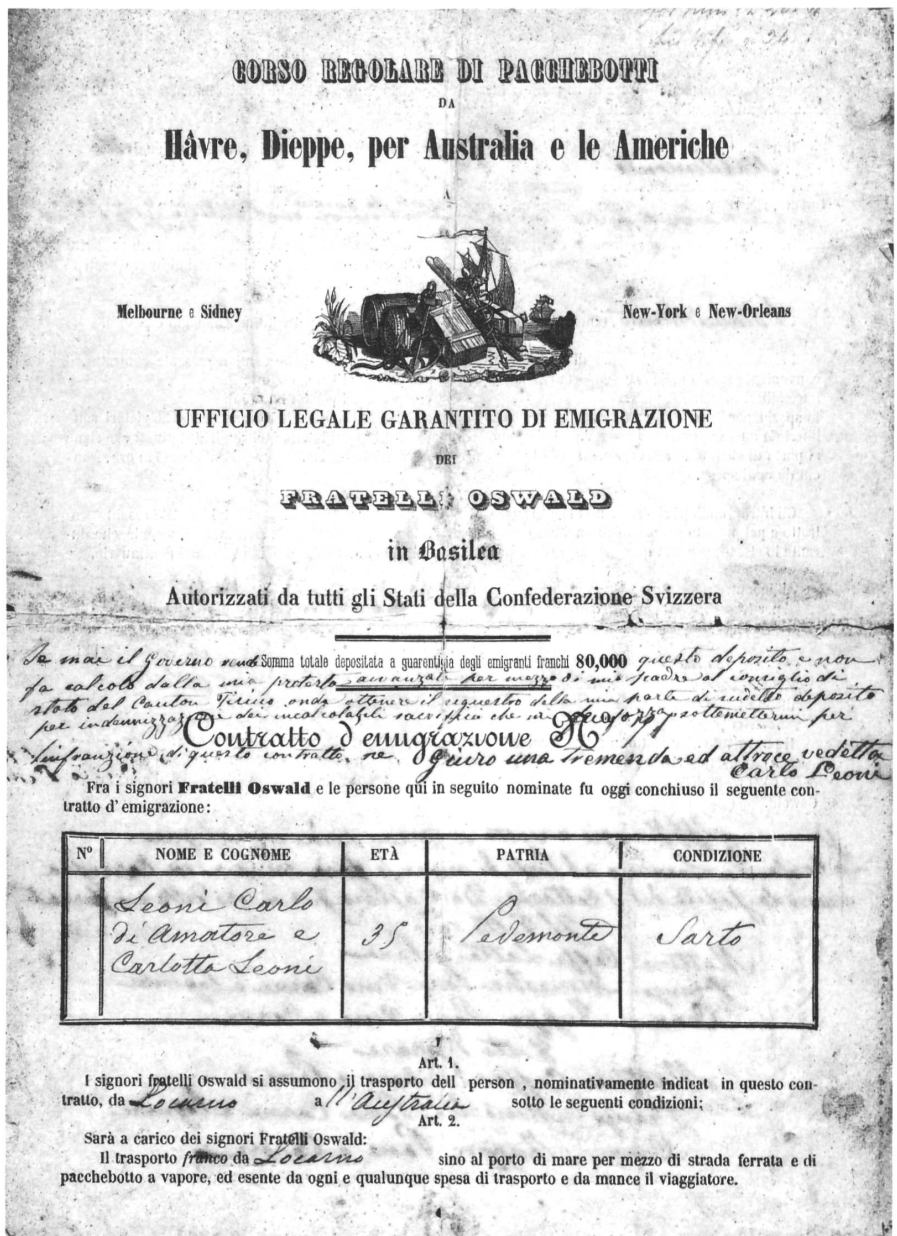 CORSO REGOLARE DI PACCHEBOTTI
DA
Hâvre, Dieppe, per Australia e le Americhe
A
Melbourne e Sidney
New-York e New-Orleans
UFFICIO LEGALE GARANTITO DI EMIGRAZIONE
DEI
FRATELLI OSWALD
in Basilea
Autorizzati da tutti gli Stati della Confederazione Svizzera
Se mai il Governo Somma totale depositata a guarentigia degli emigranti franchi 80,000 questo deposito e non
fa calcolo dalla mia protesta avanzata per mezzo di mio padre al consiglio di
stato del Canton Ticino onde ottenere il sequestro della mia parte di sudetto deposito
per indennizzazione dei incalcolabili sacrifici che forza sottomettermi per
Contratto d'emigrazione No
l'infrazione di questo contratto, ne Giuro una tremenda ed attroce vedetta
Carlo Leoni
Fra i signori Fratelli Oswald e le persone qui in seguito nominate fu oggi conchiuso il seguente con-
tratto d'emigrazione:
No NOME E COGNOME ETÀ PATRIA CONDIZIONE
Leoni Carlo
di Amatore e 35 Pedemonte Sarto
Carlotta Leoni
Art. 1.
I signori fratelli Oswald si assumono il trasporto dell person , nominativamente indicat in questo con-
tratto, da Locarno a ll'Australia sotto le seguenti condizioni;
Art. 2.
Sarà a carico dei signori Fratelli Oswald:
Il trasporto franco da Locarno sino al porto di mare per mezzo di strada ferrata e di
pacchebotto a vapore, ed esente da ogni e qualunque spesa di trasporto e da mance il viaggiatore.